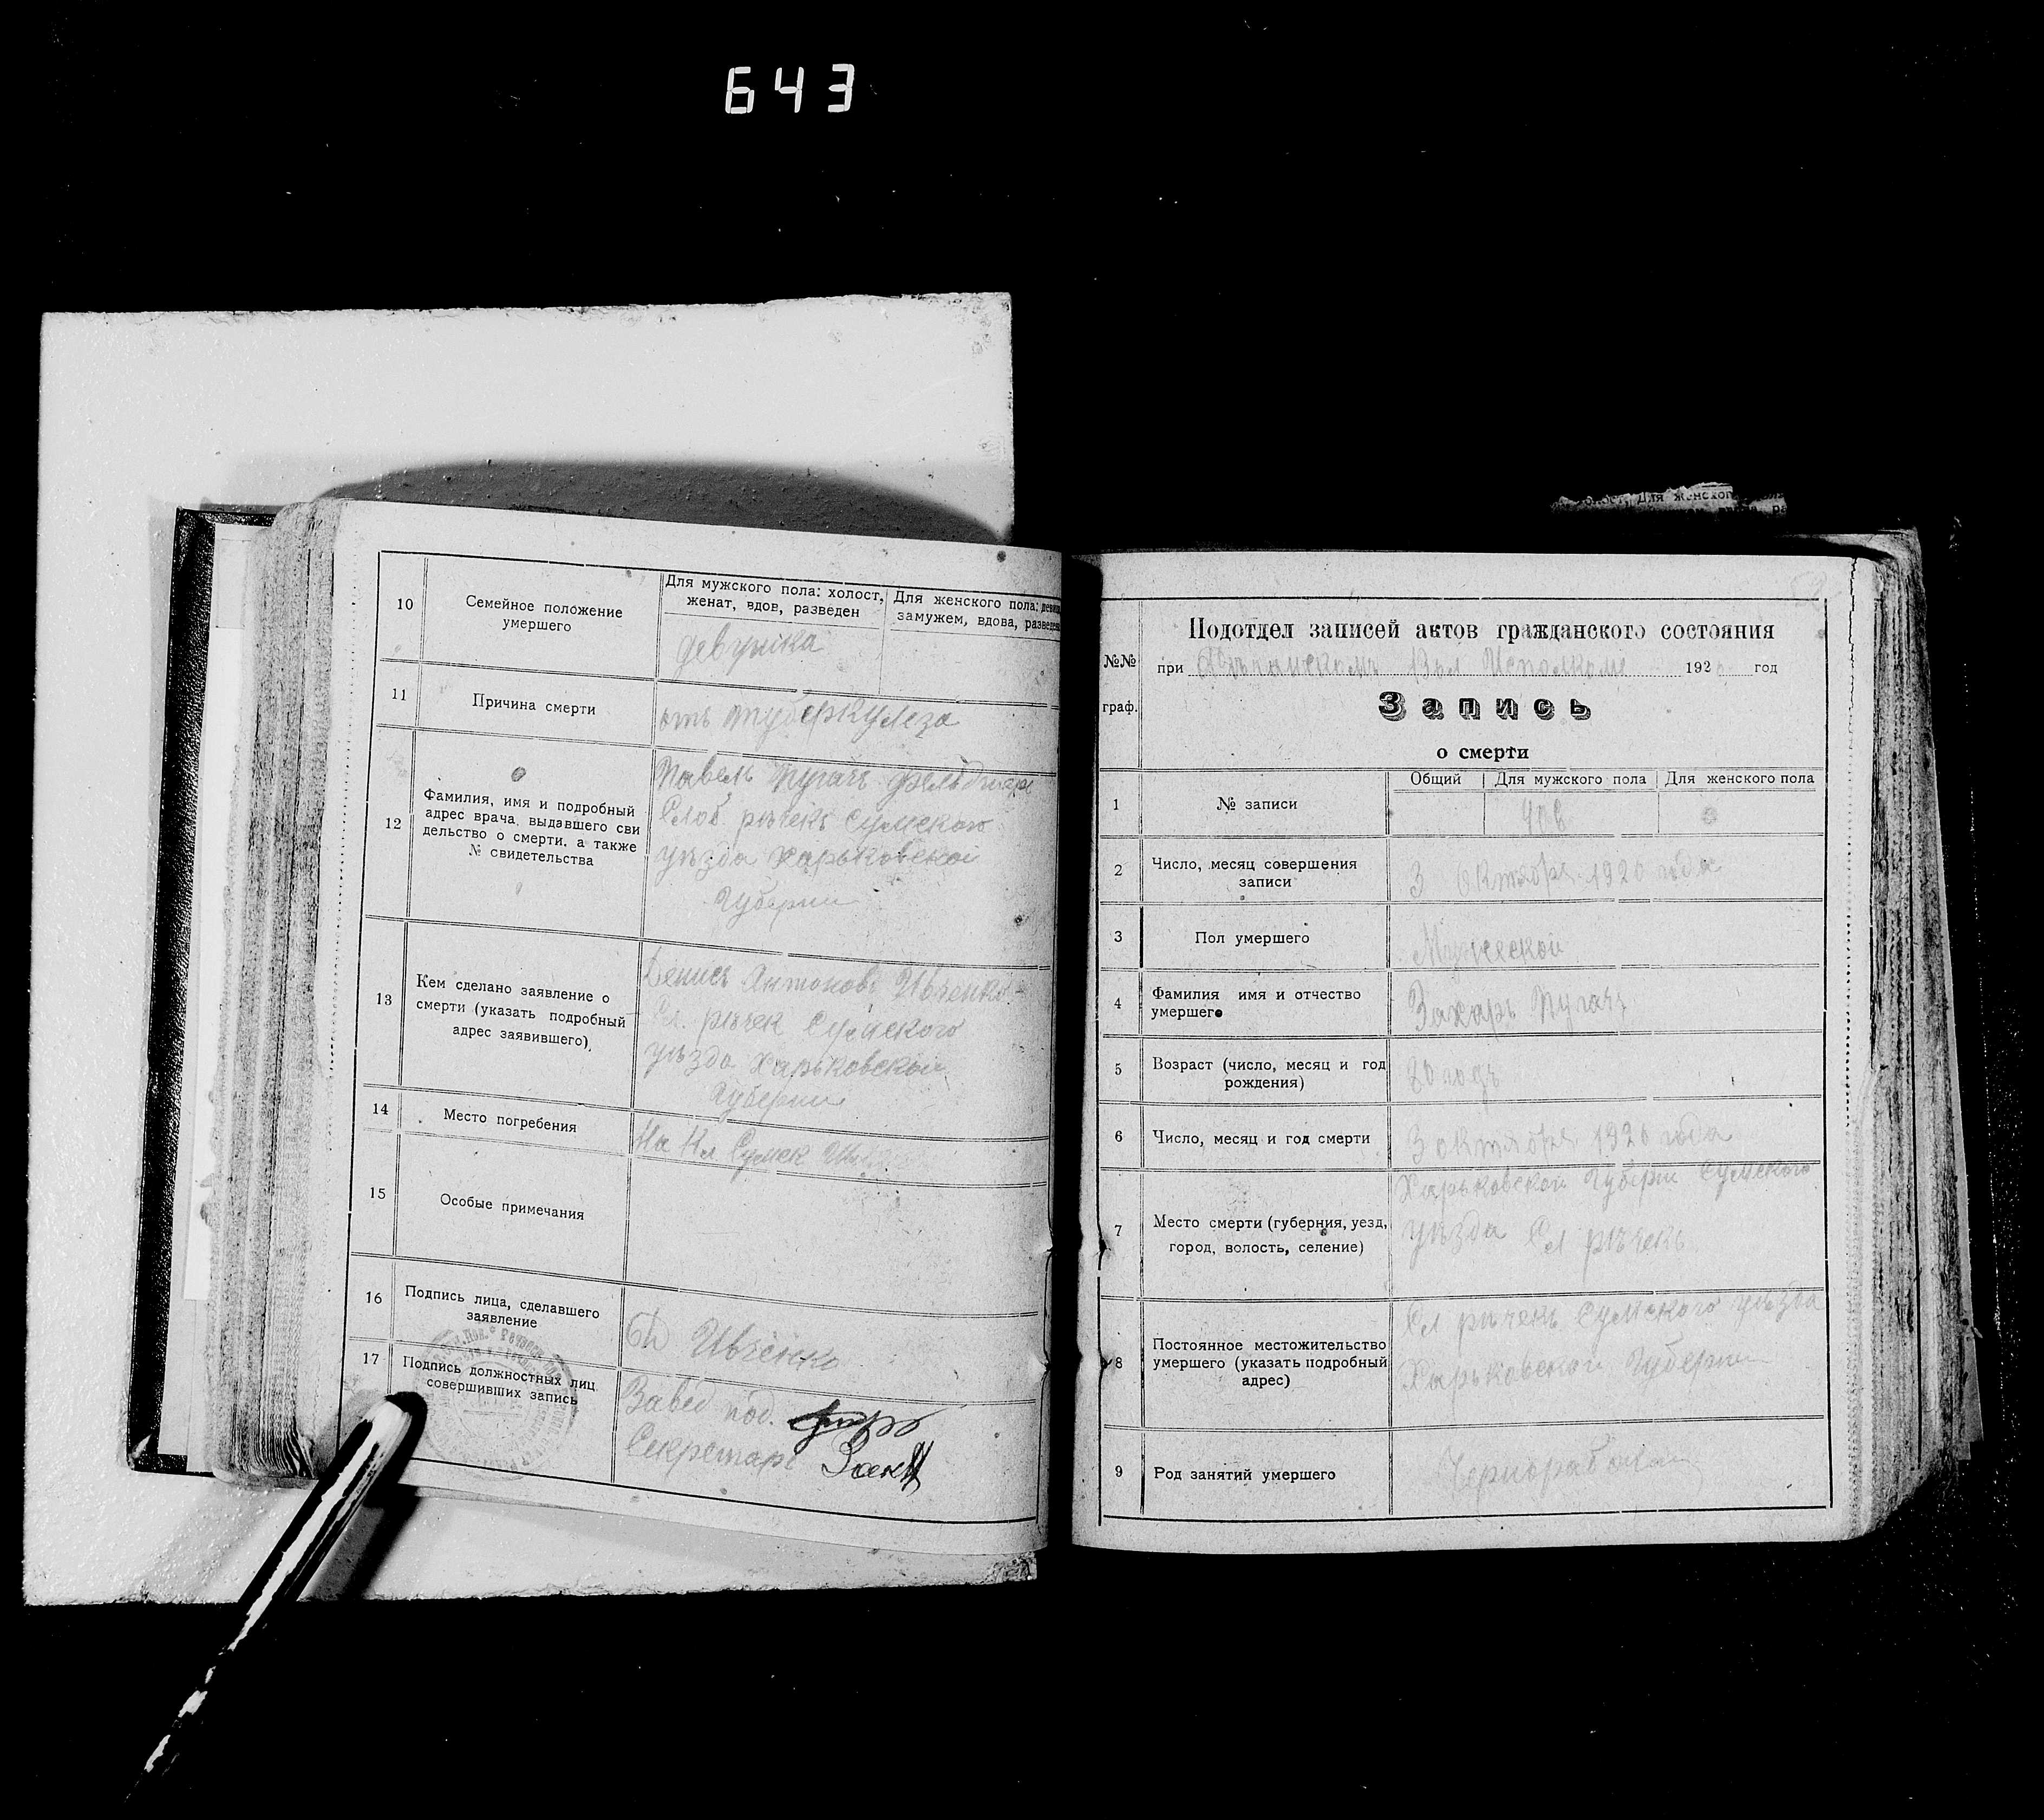 643
10
Семейное положение
умершего
Для мужского пола: холост,
женат, вдов, разведен
Для женского пола:
замужем, вдова,
девушка
11
Причина смерти
отъ туберкулеза
12
Фамилия, имя и подробный
адрес врача, выдавшего сви
дельство о смерти, а также
№ свидетельства
Павелъ Пугачъ фельдшеръ
Слоб. рѣчекъ Сумского
уѣзда Харьковской
Губернии
13
Кем сделано заявление о
смерти (указать подробный
адрес заявившего)
Денисъ Антоновъ Ивченко
Сл. рѣчек Сумского
уѣзда Харьковской
Губернии
14
Место погребения
На Кл
15
Особые примечания
16
Подпись лица, сделавшего
заявление
Ивченко
17
Подпись должностных лиц
совершивших запись
Завед под.
Секретарь
Для женского
№№
граф.
Подотдел записей актов гражданского состояния
при Вол Исполкоме 192 год
Запись
о смерти
1
№ записи
Общий
Для мужского пола
Для женского пола
2
Число, месяц совершения
записи
3 Октября 1920 года
3
Пол умершего
Мужеской
4
Фамилия имя и отчество
умершего
Захаръ Пугачъ
5
Возраст (число, месяц и год
рождения)
80 годъ
6
Число, месяц и год смерти
3 октября 1920 года
7
Место смерти (губерния, уезд,
город, волость, селение)
Харьковской Губерни Сумского
уѣзда Сл рѣчекъ
8
Постоянное местожительство
умершего (указать подробный
адрес)
Сл рѣчекъ Сумского уѣзда
Харьковской Губернии
9
Род занятий умершего